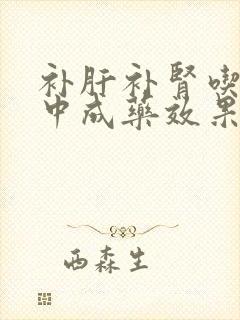 补肝补肾喫
中成藥效果
西森生